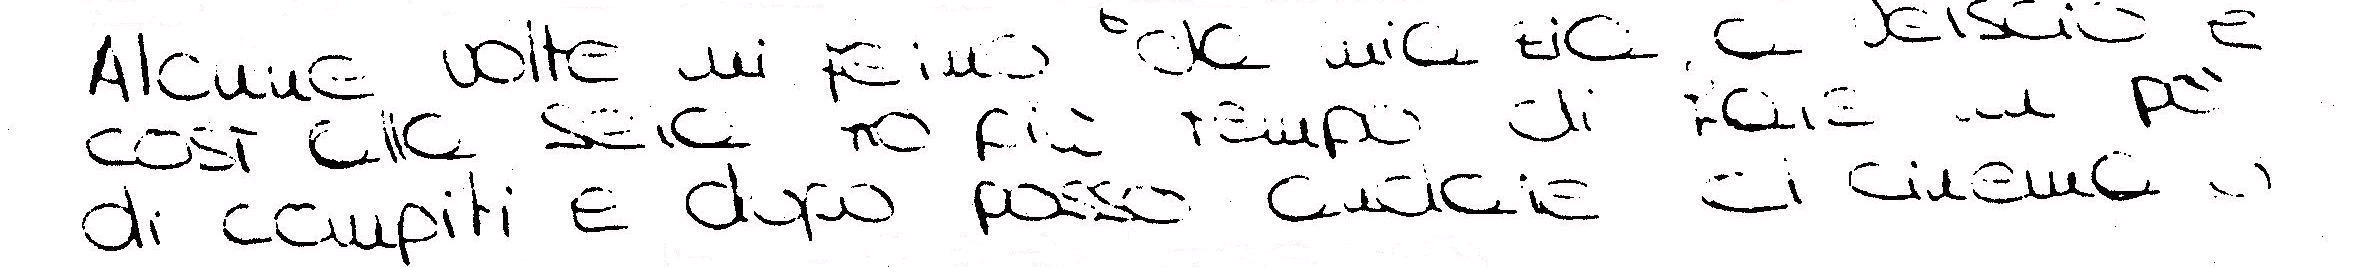 Alcune volte mi fermo da mia zia, a Jerscio e
così alla sera ho più tempo di fare un pò
di compiti e dopo posso andare al cinema o